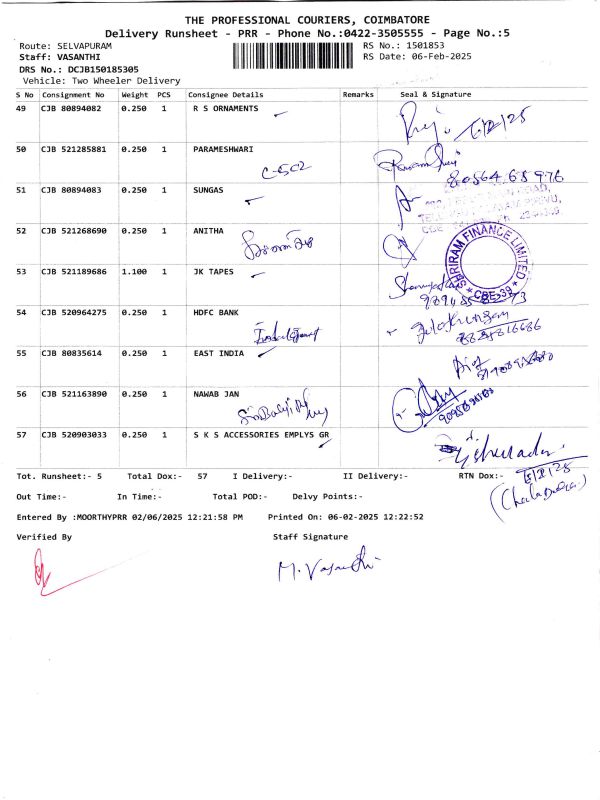 THE PROFESSIONAL COURIERS, COIMBATORE
Delivery Runsheet - PRR - Phone No.:0422-3505555 - Page No.:5
Route: SELVAPURAM
RS No.: 1501853
Staff: VASANTHI
RS Date: 06-Feb-2025
DRS No.: DCJB150185305
Vehicle: Two Wheeler Delivery
S No Consignment No Weight PCS Consignee Details Remarks Seal & Signature
49 CJB 80894082 0.250 1 R S ORNAMENTS
50 CJB 521285881 0.250 1 PARAMESHWARI
C-502
51 CJB 80894083 0.250 1 SUNGAS
52 CJB 521268690 0.250 1 ANITHA
SHRIRAM FINANCE LIMITED * CBE-39 *
53 CJB 521189686 1.100 1 JK TAPES
54 CJB 520964275 0.250 1 HDFC BANK
55 CJB 80835614 0.250 1 EAST INDIA
56 CJB 521163890 0.250 1 NAWAB JAN
57 CJB 520903033 0.250 1 S K S ACCESSORIES EMPLYS GR
Tot. Runsheet:- 5 Total Dox:- 57 I Delivery:- II Delivery:- RTN Dox:-
Out Time:- In Time:- Total POD:- Delvy Points:-
Entered By :MOORTHYPRR 02/06/2025 12:21:58 PM Printed On: 06-02-2025 12:22:52
Verified By Staff Signature
M. Vasanthi